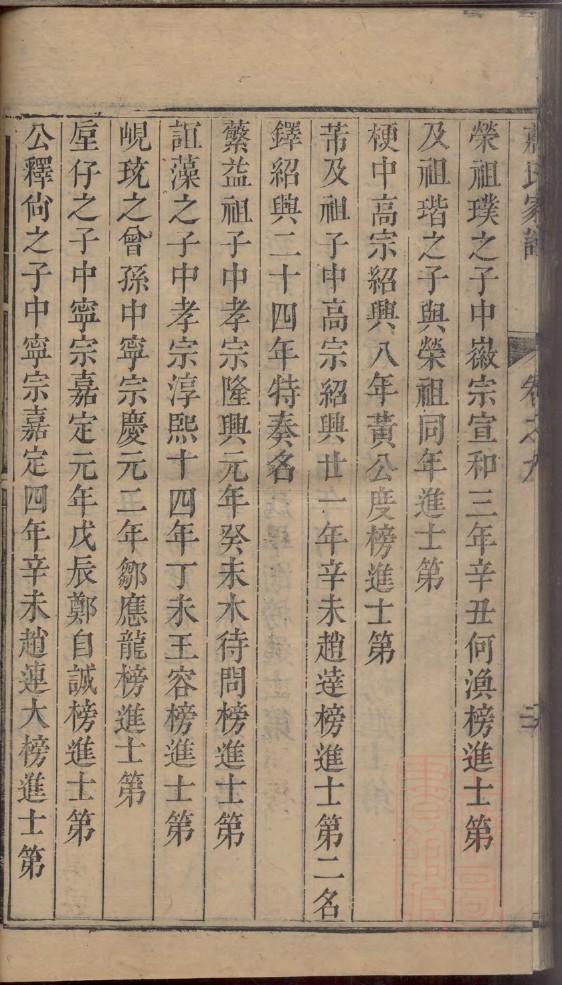 榮祖璞之子中徽宗宣和三年辛丑何渙榜進士第
及祖瑎之子與榮祖同年進士第
梗中高宗紹興八年黃公度榜進士第
芾及祖子中高宗紹興廿一年辛未趙逵榜進士第二名
鐸紹興二十四年特奏名
蘩益祖子中孝宗隆興元年癸未木待問榜進士第
誼藻之子中孝宗淳熙十四年丁未王容榜進士第
峴琉之曾孫中寧宗慶元二年鄒應龍榜進士第
垕仔之子中寧宗嘉定元年戊辰鄭自誠榜進士第
公釋尙之子中寧宗嘉定四年辛未趙蓮大榜進士第